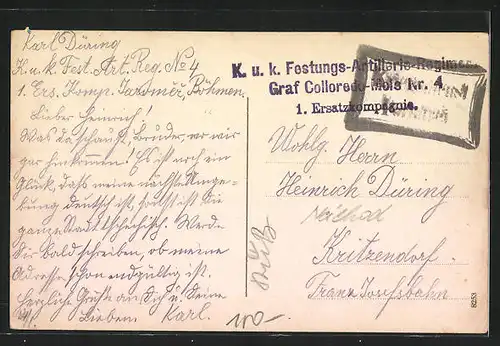 Karl Düring
K. u. k. Fest. Art. Reg. No 4
1. Ers. Komp. Jaroměř, Böhmen.
Lieber Heinrich!
Was da schaust, Bruder, wo wir
gar hinkommen! Es ist noch ein
Glück, daß meine nächste Umge-
bung deutsch ist, sonst ist die
ganze Stadt tschechisch. Werde
Dir bald schreiben, ob meine
Adresse schon endgültig ist.
Herzliche Grüße an Dich u. Deine
Lieben. Karl.
K. u. k. Festungs-Artillerie-Regiment
Graf Colloredo-Mels Nr. 4.
1. Ersatzkompagnie.
Wohlg. Herrn
Heinrich Düring
Kritzendorf.
Franz Josefsbahn
8253